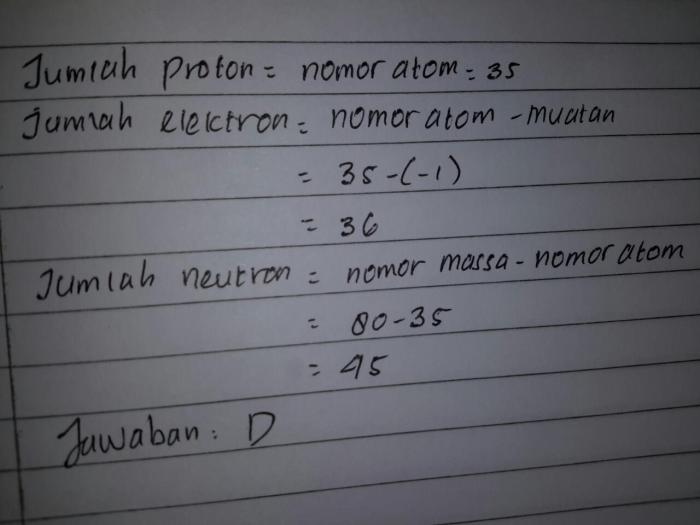 Jumlah proton = nomor atom = 35
Jumlah elektron = nomor atom - muatan
= 35 - (-1)
= 36
Jumlah neutron = nomor massa - nomor atom
= 80 - 35
= 45
Jawaban : D